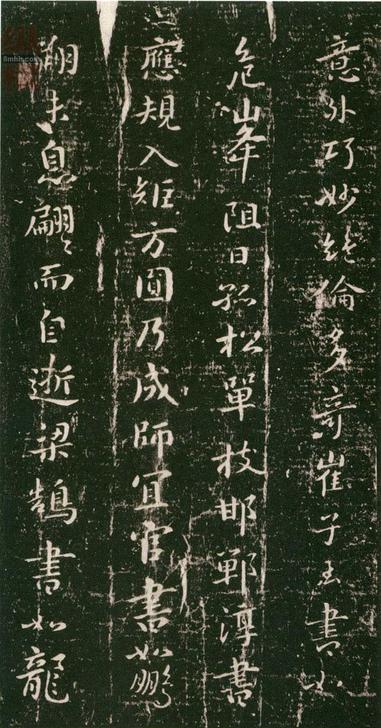 意外巧妙絶倫多奇崔子玉書如
危峰阻日孤松單枝邯鄲淳書
應規入矩方圓乃成師宜官書如鵬
翔未息翩翩而自逝梁鵠書如龍
8mhh.com